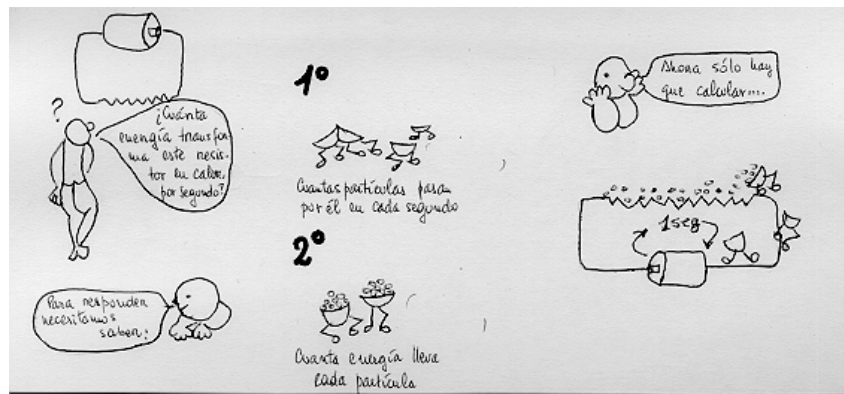 ?
¿Cuánta
energía transfor
ma este resis-
tor en calor,
por segundo?
Para responder
necesitamos
saber:
1º
Cuantas partículas pasan
por él en cada segundo
2º
Cuanta energía lleva
cada partícula
Ahora sólo hay
que calcular....
1seg